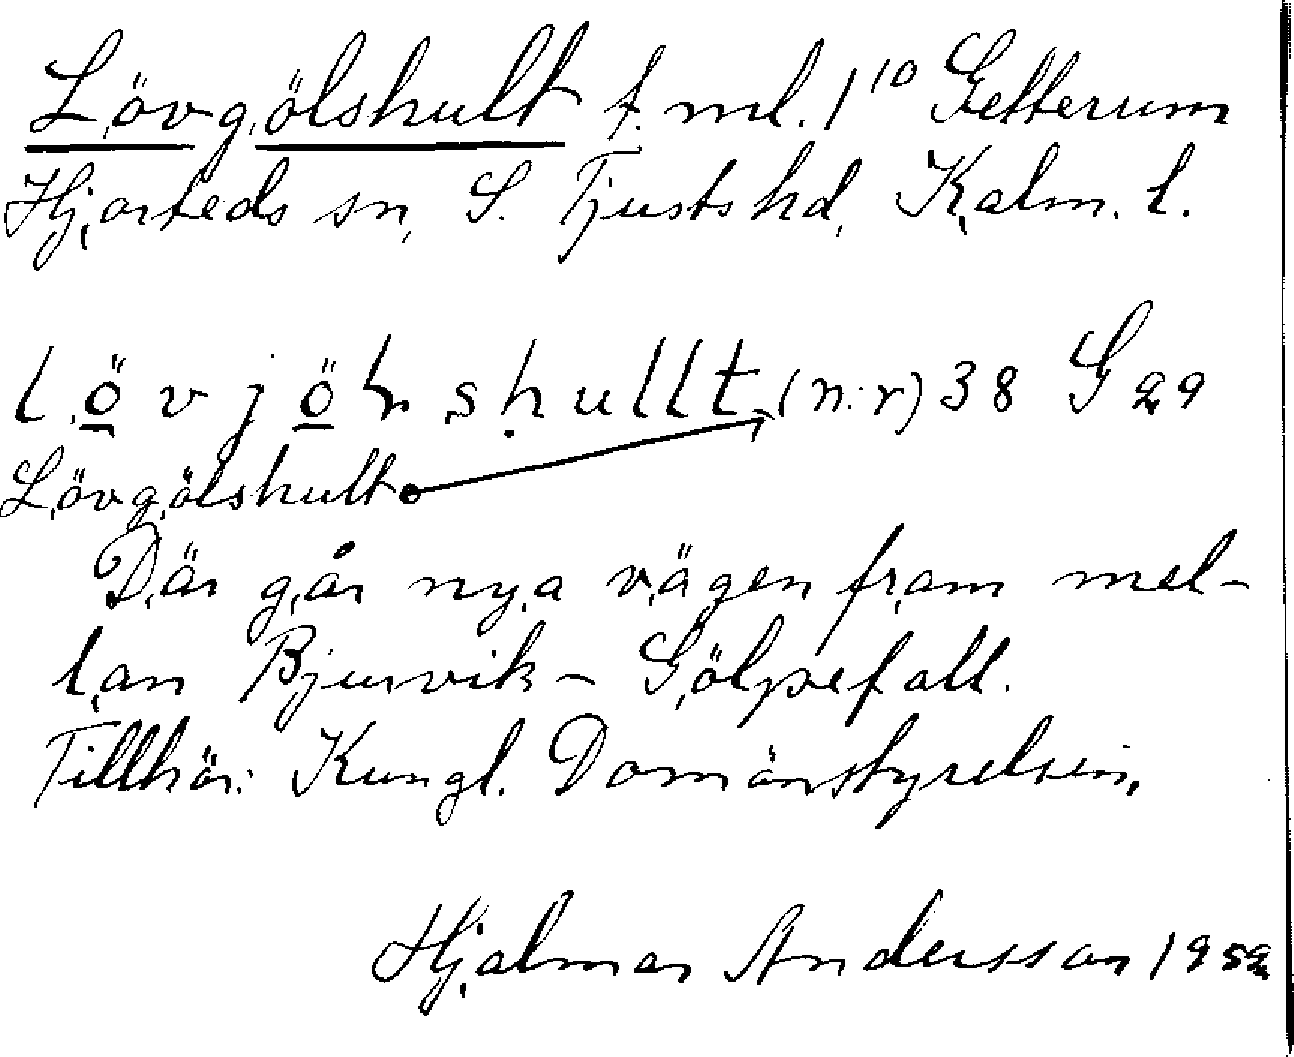 Lövgölshult t. ml. 1¹⁰ Getterum
Hjorteds sn, S. Tjusts hd, Kalm. l.
lövjöls hullt, (n.r) 38 G 29
Lövgölshult
Där går nya vägen fram mel-
lan Bjurvik - Gölpefall.
Tillhör: Kungl. Domänstyrelsen,
Hjalmar Andersson 1952